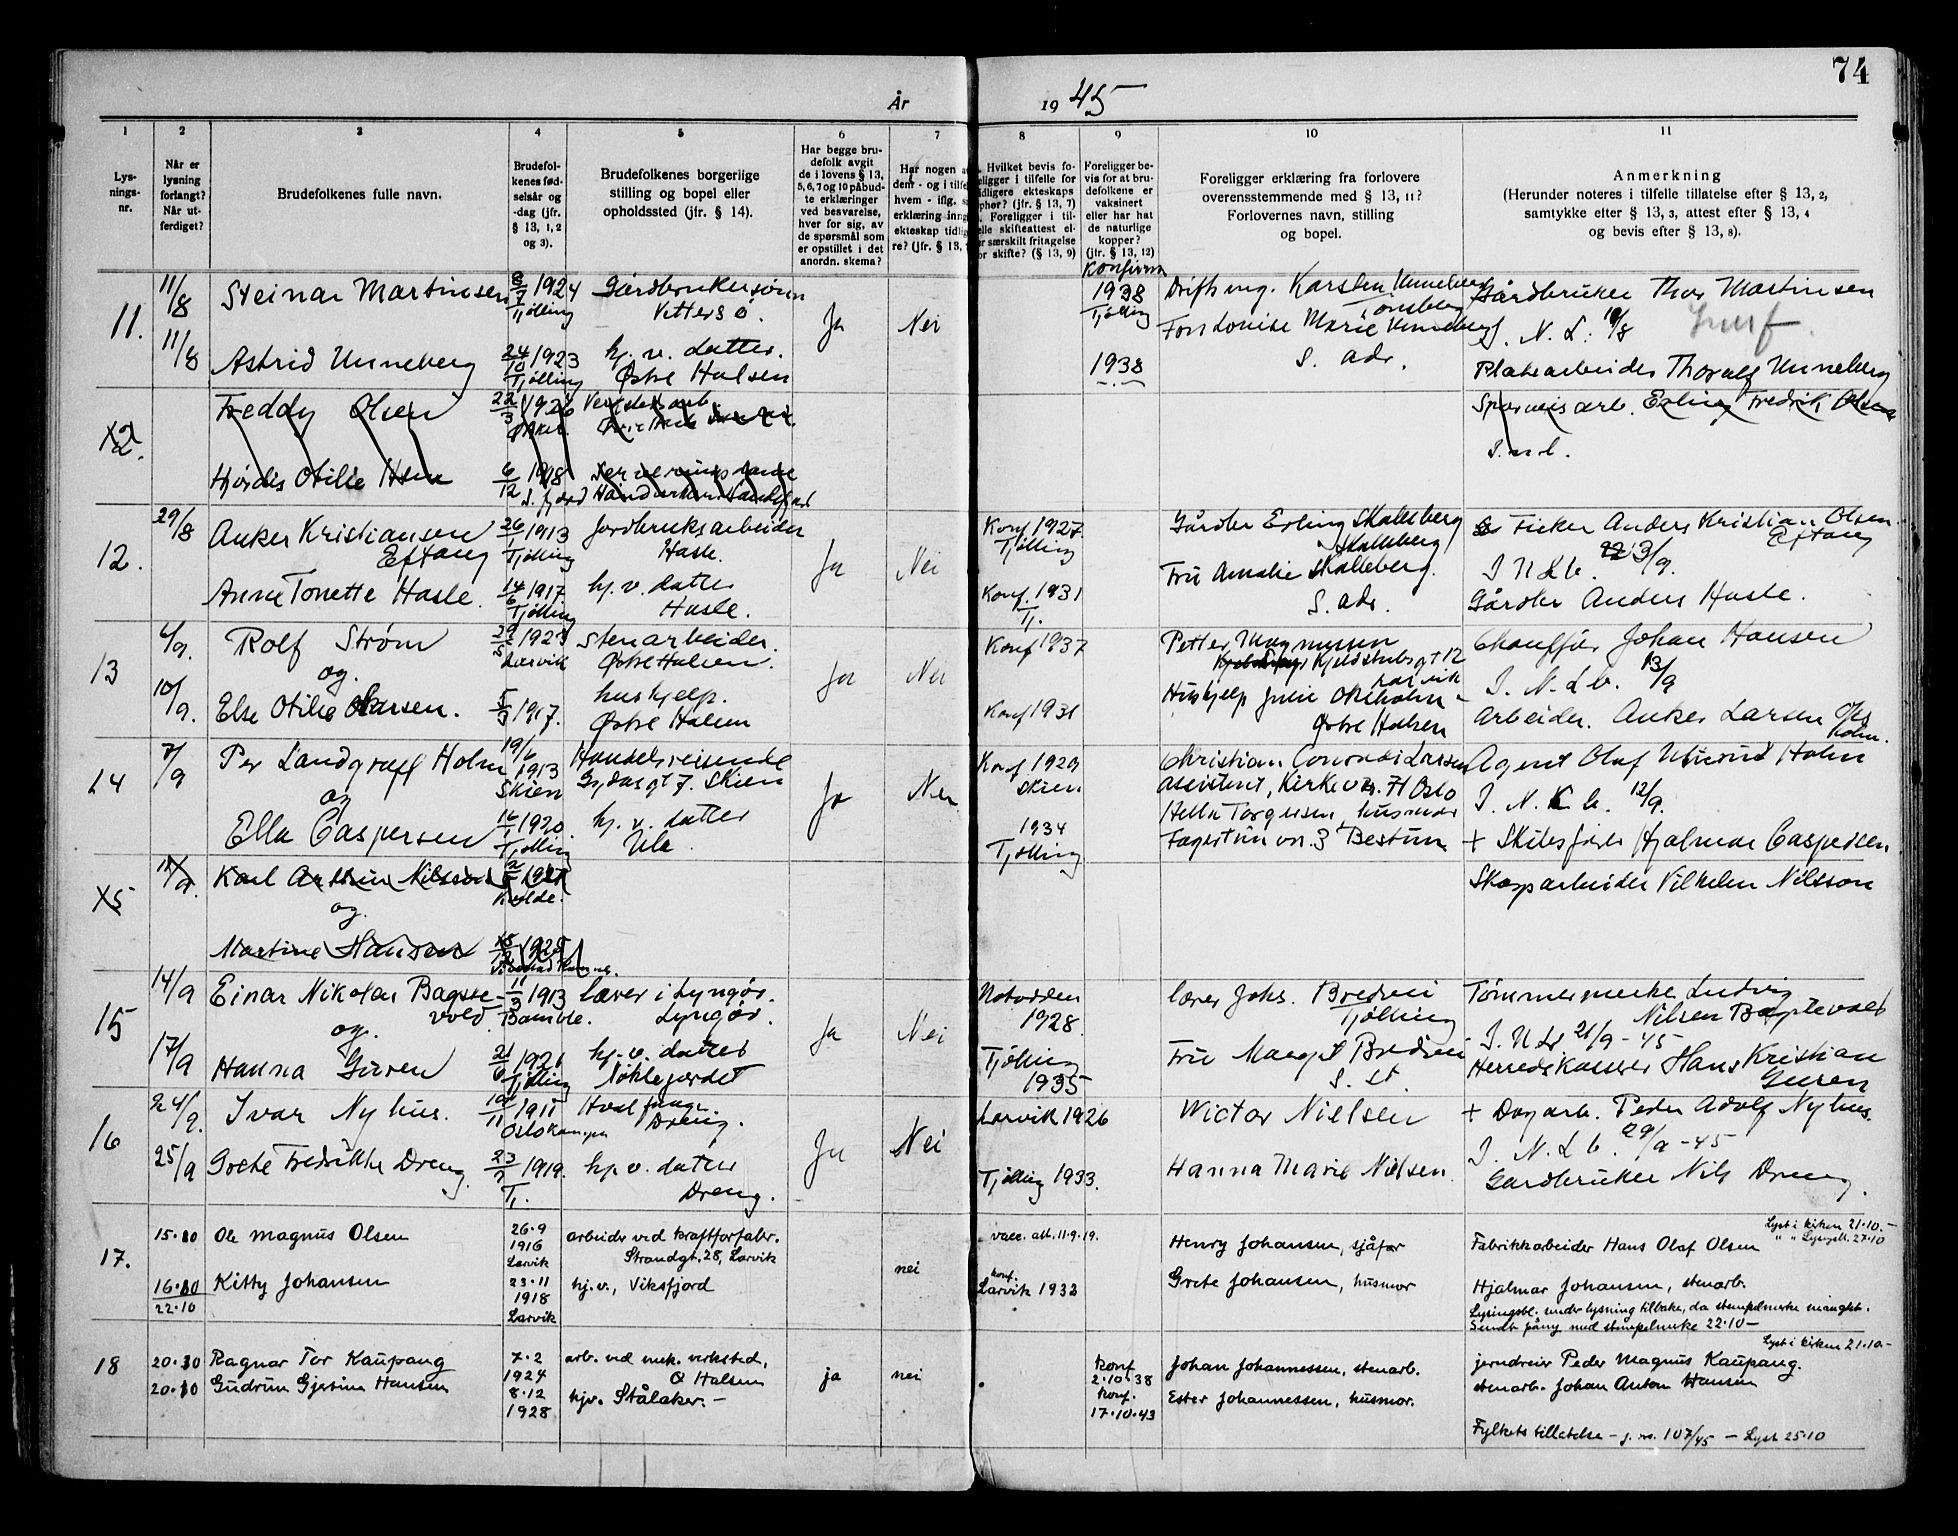 74
År 1945
1 2 3 4 5 6 7 8 9 10 11
Lys-
nings-
nr.
Når er
lysning
forlangt?
Når ut-
ferdiget?
Brudefolkenes fulle navn.
Brudefol-
kenes fød-
selsår og
-dag (jfr.
§ 13, 1, 2
og 3).
Brudefolkenes borgerlige
stilling og bopel eller
opholdssted (jfr. § 14).
Har begge bru-
defolk avgit
de i lovens § 13,
5, 6, 7 og 10 påbud-
te erklæringer
ved besvarelse,
hver for sig, av
de spørsmål som
er opstillet i det
anordn. skema?
Har nogen a
dem - og i tilfe
hvem - iflg. s
erklæring inng
ekteskap tidlig
re? (jfr. § 13,
Hvilket bevis fo-
eligger i tilfelle for
idligere ekteskaps
ophør? (jfr. § 13, 7)
Foreligger i til-
elle skifteattest el-
er særskilt fritagelse
or skifte? (§ 13, 9)
Foreligger be-
vis for at bru-
defolkene er
vaksinert
eller har hat
de naturlige
kopper?
(jfr. § 13, 12)
Foreligger erklæring fra forlovere
overensstemmende med § 13, 11?
Forlovernes navn, stilling
og bopel.
Anmerkning
(Herunder noteres i tilfelle tillatelse efter § 13, 2,
samtykke efter § 13, 3, attest efter § 13, 4
og bevis efter § 13, 8).
11.
11/8
Steinar Martinsen
8/7 1924
Tjølling
Gårdbrukersønn
Vittersø.
Ja
Nei
Konfirm
1938
Tjølling
Drifts ing. Karsten Unneberg
Tønsberg
Gårdbruker Thor Martinsen
11/8
Astrid Unneberg
24/10 1923
Tjølling
hj. v. datter.
Østre Halsen
1938
Louise Marie Unneberg
S. adr.
J. N. L: 18/8
Platearbeider Thoralf Unneberg
X2.
Freddy Olsen
22/3 1926
Sporveisarb. Erling Fredrik Olsen
Hjørdis Otilie
6/12 1918
S. fjord
12.
29/8
Anker Kristiansen
Eftang
26/1 1913
Tjølling
Jordbruksarbeider
Hasle.
Ja
Nei
Konf 1927.
Tjølling
Gårdbr Erling Skalleberg
Skalleberg
Fisker Anders Kristian Olsen
Eftang
Anne Tonette Hasle.
14/6 1917.
Tjølling
hj. v. datter
Hasle.
Konf. 1931
Tj.
Fru Amalie Skalleberg.
S. adr.
3/9.
Gårdbr Anders Hasle.
13
4/9.
Rolf Strøm
og.
1923
Larvik
Stenarbeider.
Østre Halsen.
Ja
Nei
Konf 1937
Petter Magnussen
Kjeldsbugt 12
Larvik
Chauffør Johan Hansen
J. N. L b. 13/9
10/9.
Else Otilie Larsen.
5/3 1917.
hushjelp.
Østre Halsen
Konf 1931
Hushjelp Julie
Østre Halsen
Arbeider. Anker Larsen
14
7/9
Per Landgraff Holm
og
19/6 1913
Skien
Handelsreisende
Gydasgt 7. Skien
Ja
Nei
Konf 1929
Skien
Christian Conradi Larsen
assistent, Kirkevn. 71 Oslo
Agent Olaf Holm
J. N. L b. 12/9.
Ella Caspersen
16/1 1920.
Tjølling
hj. v. datter
Ula.
1934
Tjølling
Hella Torgersen, husmor
Fagertun vn. 3 Bestum
+ Skibsfører Hjalmar Caspersen
X5
Karl Arthur Nilsson
og.
Skogsarbeider Vilhelm Nilsson
Martine Hansen
15
14/9
Einar Nikolai Bagste-
vold.
og.
11/3 1913
Bamble.
lærer i Lyngør.
Lyngør.
Ja
Nei
Notodden
1928.
lærer Johs. Bredvei
Tjølling
Tømmermerker Ludvig
Nilsen
J. N Lb 21/9-45
17/9
Hanna Guren
21/6 1921
Tjølling
hj. v. datter
Tjølling
1935
Fru Margit Bredvei
S. st.
Herredskasserer Hans Kristian
Guren
16
24/9.
Ivar Nyhus.
1911
Hvalfanger.
Dreng.
Ja
Nei
Larvik 1926
Wictor Nielsen
+ Dagarb. Peder Adolf Nyhus.
J. N. L b. 29/9-45
25/9
Grete Fredrikke Dreng
23/2 1919.
Tj.
hj. v. datter
Dreng.
Tjølling 1933.
Hanna Marie Nielsen.
Gardbruker Nils Dreng.
17.
15.10
Ole Magnus Olsen
26.9
1916
Larvik
arbeider ved kraftforfabr.
Strandgt. 28, Larvik
nei
vacc. att. 11.9.19.
Henry Johansen, sjåfør
Lyst i kirken 21.10.-
" " Lysingsbl. 27.10
Fabrikkarbeider Hans Olaf Olsen
16.10
22.10
Kitty Johansen
23.11
1918
Larvik
hj.v., Viksfjord
konf.
Larvik 1933
Grete Johansen, husmor
Hjalmar Johansen, stenarb.
Lysingsbl. under lysning tilbake, da stempelmerke manglet.
Sendt påny med stempelmerke 22.10-
18
20.10
Ragnar Tor Kaupang
7.2
1924
arb. ved mek. verksted,
Ø Halsen
ja
nei
konf
2.10.38
Johan Johannessen, stenarb.
Lyst i kirken 21.10-
jerndreier Peder Magnus Kaupang.
20.10
Gudrun Gjertine Hansen
8.12
1928
hjv. Stålaker.-
konf.
17.10.43
Ester Johannessen, husmor.
stenarb. Johan Anton Hansen
Fylkets tillatelse - j. nr. 107/45 - Lyst 25.10